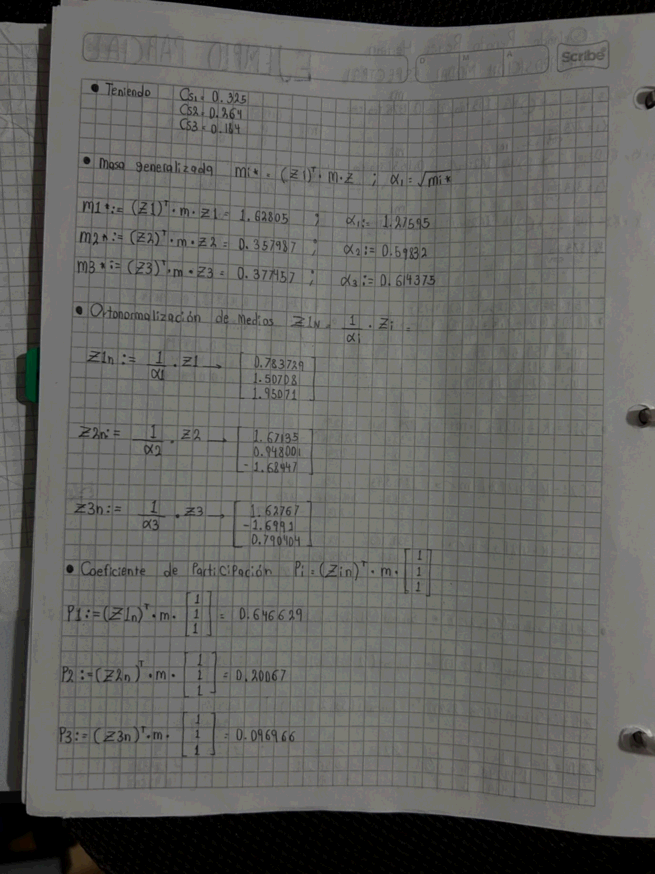 Scribe
D M A
• Teniendo Cs1 = 0.325
Cs2 = 0.264
Cs3 = 0.184
• Masa generalizada mi* = (Z1)ᵀ · m · Z ; α1 = √mi*
m1*:= (Z1)ᵀ · m · Z1 = 1.62805 ; α1:= 1.27595
m2*:= (Z2)ᵀ · m · Z2 = 0.357987 ; α2:= 0.59832
m3*:= (Z3)ᵀ · m · Z3 = 0.377457 ; α3:= 0.614375
• Ortonormalización de Medios Z1N = 1/αi · Zi =
Z1n:= 1/α1 · Z1 → [0.783729
1.50708
1.95071]
Z2n:= 1/α2 · Z2 → [1.67135
0.948001
-1.68447]
Z3n:= 1/α3 · Z3 → [1.62767
-1.6991
0.790404]
• Coeficiente de Participación Pi = (Zin)ᵀ · m · [1
1
1]
P1:= (Z1n)ᵀ · m · [1
1
1] = 0.646629
P2:= (Z2n)ᵀ · m · [1
1
1] = 0.20067
P3:= (Z3n)ᵀ · m · [1
1
1] = 0.096966